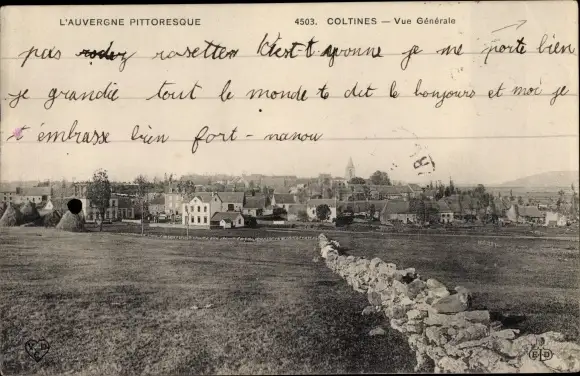 L'AUVERGNE PITTORESQUE
4503. COLTINES — Vue Générale
pas rosetter yvonne je me porte bien
je grandie tout le monde te dit le bonjours et moi je
t'embrasse bien fort - nanou
R
ELD